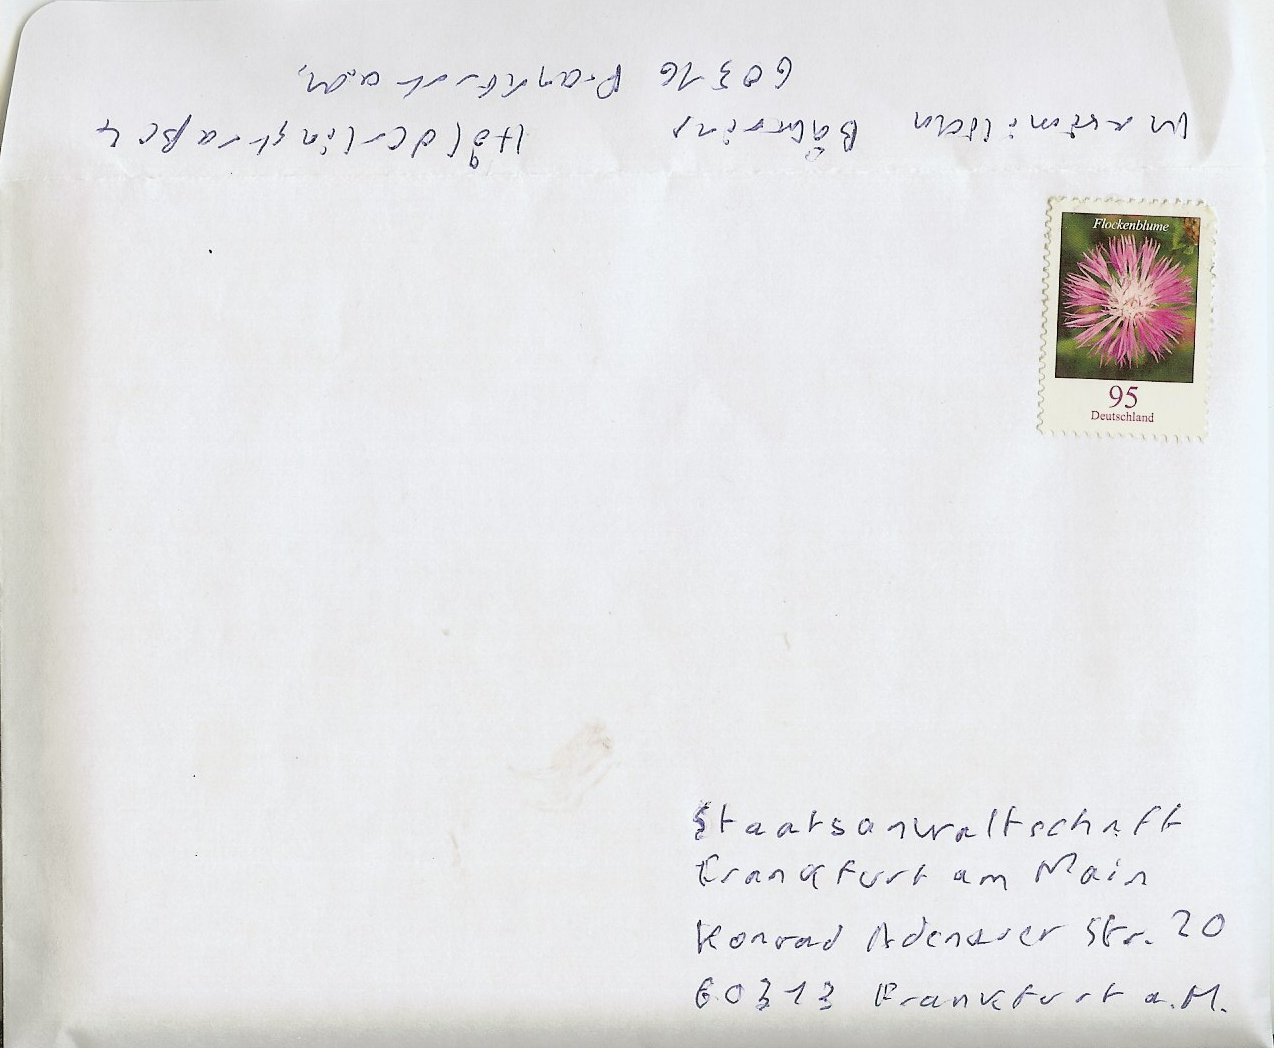 Maximilian Bähring Hölderlinstraße 4
60316 Frankfurt a.M.
Flockenblume
95
Deutschland
Staatsanwaltschaft
Frankfurt am Main
Konrad Adenauer Str. 20
60313 Frankfurt a.M.